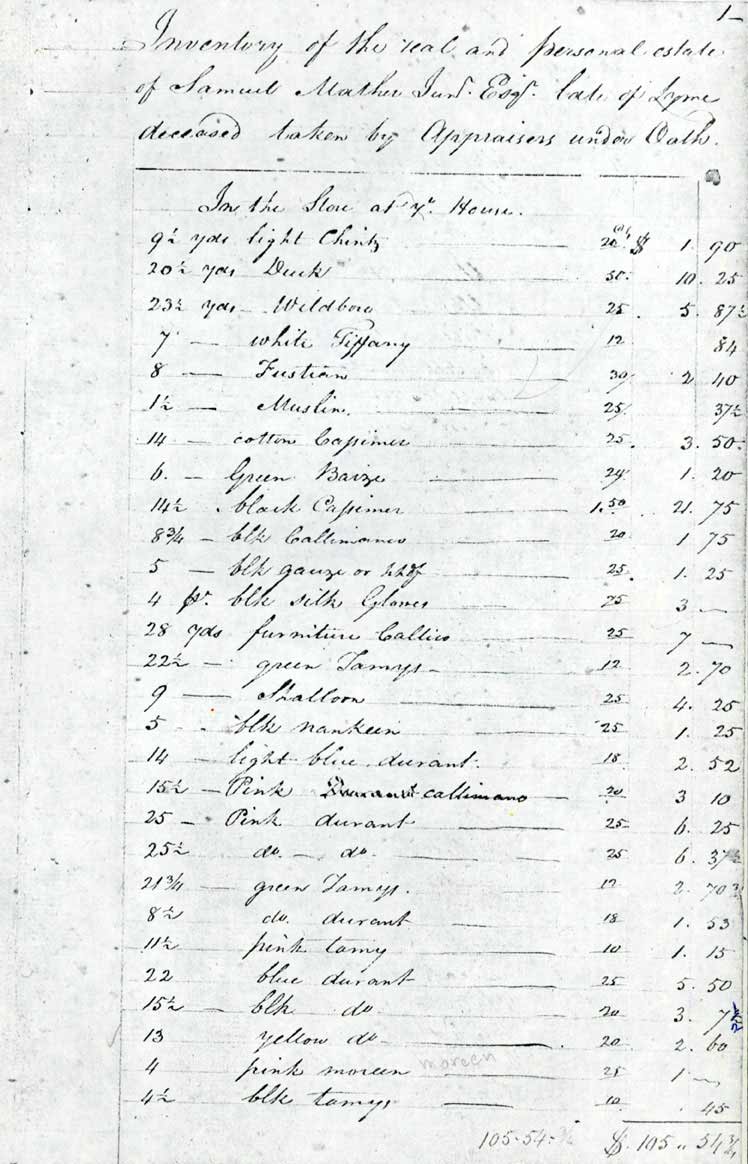 1-
Inventory of the real and personal estate
of Samuel Mather Junr. Esqr. late of Lyme
deceased taken by Appraisers under Oath.
In the Store at ye. House.
9½ yds light Chintz 20 cts $ 1. 90
20½ yds Duck 50. 10. 25
23½ yds Wildbore 25. 5. 87½
7 — white Tiffany 12 84
8 — Fustian 30 2 40
1½ — Muslin. 25. 37½
14 — cotton Cassimer 25. 3. 50.
6. — Green Baize 20 1. 20
14½ . black Cassimer 1.50 21. 75
8¾ — blk Callimanco 20 1 75
5 — blk gauze or hkf 25. 1. 25
4 pr. blk silk Gloves 75 3 —
28 yds furniture Callico 25 7 —
22½ — green Tamys 12 2. 70
9 — Shalloon 25 4. 25
5 . blk nankeen 25 1. 25
14 — light blue durant. 18 2. 52
15½ — Pink callimano 20 3 10
25 — Pink durant 25 6. 25
25½ do. — do. 25 6. 37½
21¾ green Tamys. 12 2. 70
8½ do. durant 18 1. 53
11½ pink tamy 10 1. 15
22 blue durant 25 5. 50
15½ — blk do 20 3. 7
13 yellow do 20 2. 60
4 pink moreen moreen 25 1 —
4½ blk tamys 10 . 45
105-54-¾ $. 105.. 54¾